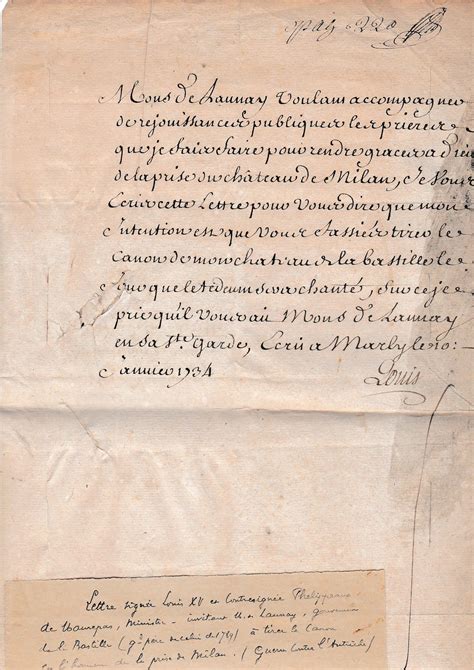 Mons de Launay Voulant accompagner
de rejouissances publiques les prieres
que je fais faire pour rendre graces a Dieu
de la prise du château de Milan, Je vous
Ecris cette Lettre pour vous dire que mon
Intention est que vous fassiés tirer le
Canon de mon chateau de la bastille le
Jour que le tedeum sera chanté, Sur ce je
prie qu'il vous ait Mons de Launay
en sa Ste garde, Ecris a Marly le 10:
Janvier 1734
Louis
Lettre signée Louis XV et contresignée Phelippeaux
de Maurepas, Ministre - invitant M. de Launay, gouverneur
de la Bastille (gd père de celui de 1789) à tirer le Canon
en l'honneur de la prise de Milan. (Guerre contre l'Autriche)